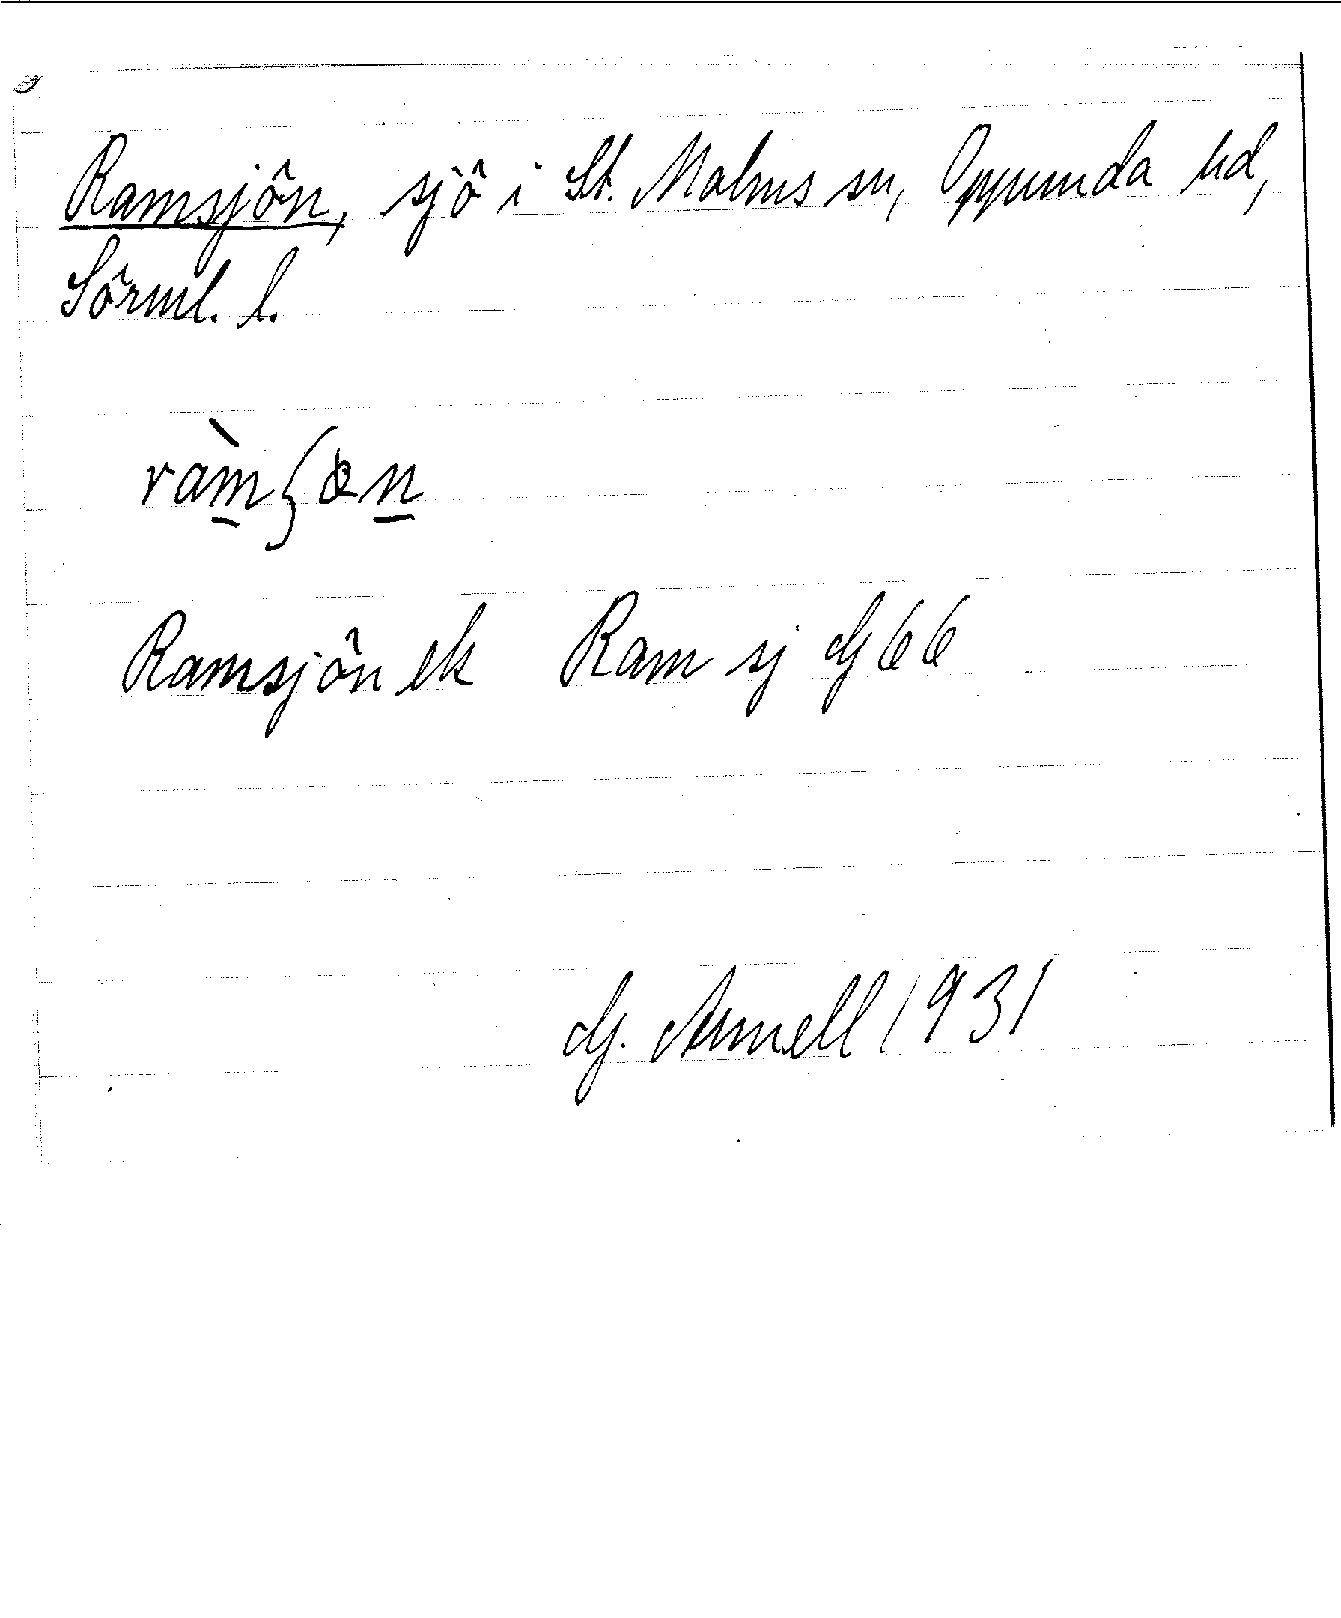 Ramsjön, sjö i St. Malms sn, Oppunda hd,
Sörml. l.
ràmʃøn
Ramsjön ek Ram sj G 66
G. Arnell 1931